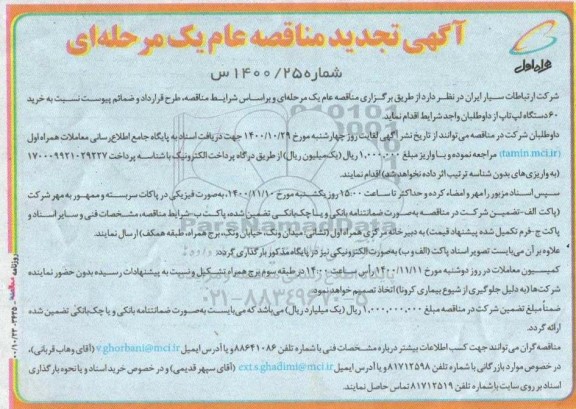 آگهی تجدید مناقصه عام یک مرحله‌ای
شماره ۱۴۰۰/۲۵ س
همراه اول
شرکت ارتباطات سیار ایران در نظر دارد از طریق برگزاری مناقصه عام یک مرحله‌ای و براساس شرایط مناقصه، طرح قرارداد و ضمائم پیوست نسبت به خرید
۶۰ دستگاه لپ تاپ از داوطلبان واجد شرایط اقدام نماید.
داوطلبان شرکت در مناقصه می‌توانند از تاریخ نشر آگهی لغایت روز چهارشنبه مورخ ۱۴۰۰/۱۰/۲۹ جهت دریافت اسناد به پایگاه جامع اطلاع رسانی معاملات همراه اول
(tamin.mci.ir) مراجعه نموده و با واریز مبلغ ۱,۰۰۰,۰۰۰ ریال (یک میلیون ریال) از طریق درگاه پرداخت الکترونیک با شناسه پرداخت ۱۷۰۰۰۹۹۲۱۰۲۹۲۲۷
(به واریزی‌های بدون شناسه ترتیب اثر داده نخواهد شد) اقدام نمایند.
سپس اسناد مزبور را مهر و امضاء کرده و حداکثر تا ساعت ۱۵:۰۰ روز یکشنبه مورخ ۱۴۰۰/۱۱/۱۰، به‌صورت فیزیکی در پاکات سربسته و ممهور به مهر شرکت
(پاکت الف-تضمین شرکت در مناقصه به‌صورت ضمانتنامه بانکی و یا چک بانکی تضمین شده، پاکت ب-شرایط مناقصه، مشخصات فنی و سایر اسناد و
پاکت ج-فرم تکمیل شده پیشنهاد قیمت) به دبیرخانه مرکزی همراه اول (نشانی: میدان ونک، خیابان ونک، برج همراه، طبقه همکف) ارسال نمایند.
علاوه بر آن می‌بایست تصویر اسناد پاکت (الف و ب) به‌صورت الکترونیکی نیز در پایگاه مذکور بارگذاری گردد.
کمیسیون معاملات در روز دوشنبه مورخ ۱۴۰۰/۱۱/۱۱ رأس ساعت ۱۴:۰۰ در طبقه سوم برج همراه تشکیل و نسبت به پیشنهادات رسیده بدون حضور نماینده
شرکت‌ها (به دلیل جلوگیری از شیوع بیماری کرونا) اتخاذ تصمیم خواهد نمود.
ضمناً مبلغ تضمین شرکت در مناقصه مبلغ ۱,۰۰۰,۰۰۰,۰۰۰ ریال (یک میلیارد ریال) می‌باشد که می‌بایست به‌صورت ضمانتنامه بانکی و یا چک بانکی تضمین شده
ارائه گردد.
مناقصه‌گران می‌توانند جهت کسب اطلاعات بیشتر درباره مشخصات فنی با شماره تلفن ۸۸۶۴۱۰۸۶ و یا آدرس ایمیل v.ghorbani@mci.ir (آقای وهاب قربانی)،
در خصوص موارد بازرگانی با شماره تلفن ۸۱۷۱۲۵۹۸ و یا آدرس ایمیل ext.s.ghadimi@mci.ir (آقای سپهر قدیمی) و در خصوص خرید اسناد و یا نحوه بارگذاری
اسناد بر روی سایت با شماره تلفن ۸۱۷۱۲۵۱۹ تماس حاصل نمایند.
۰۲۱-۸۸۳۴۹۶۷۰-۵